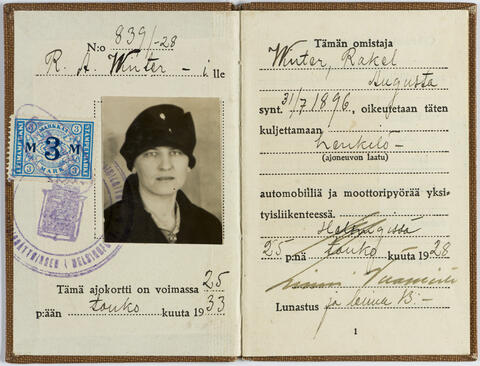 N:o 839/-28
R. A. Winter - ille
LEIMAMERKKI
STÄMPELMÄRKE
3
M 3 M
MARKKAA
MARK
Tämä ajokortti on voimassa 25
p:ään touko kuuta 1933
Tämän omistaja
Winter, Rakel
Augusta
synt. 31/7 1896, oikeutetaan täten
kuljettamaan
henkilö-
(ajoneuvon laatu)
automobiiliä ja moottoripyörää yksi-
tyisliikenteessä.
Helsingissä
25 p:nä touko kuuta 1928
Lunastus ja leima 13:-
1